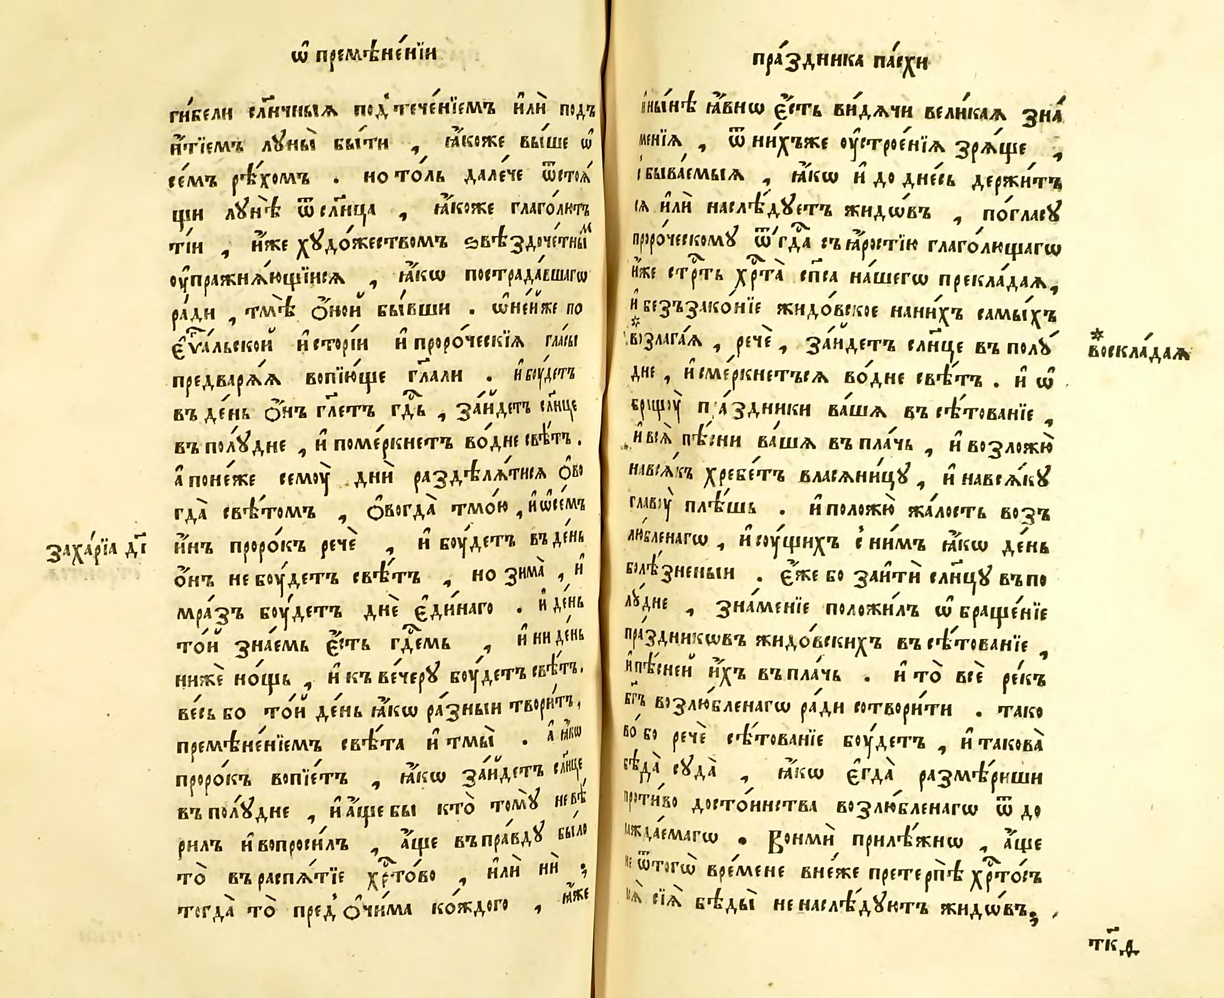 ѡ҆ премѣне́нїи
ги́бели сл҃нчныѧ под̾ тече́нїемъ и҆лѝ подъ
ꙗ҆́тїемъ лꙋны̀ бы́ти , ꙗ҆́коже вы́ше ѡ҆
се́мъ рѣ́хомъ . но то́ль дале́че ѿстоѧ́
щи лꙋнѣ̀ ѿ сл҃нца , ꙗ҆́коже глаго́лютъ
ті́и , и҆́же хꙋдо́жествомъ ѕвѣздоче́тны̑мъ
ᲂу҆пражнѧ́ющїисѧ , ꙗ҆́кѡ пострада́вшагѡ
ра́ди , тмѣ̀ ѻ҆́ной бы́вши . ѡ҆ не́йже по
є҆ѵⷢ҇а́льской и҆сто́рїи и҆ проро́ческїѧ гла́сы
предварѧ́ѧ вопїю́ще гл҃али . и҆ бꙋ́детъ
въ де́нь ѻ҆́нъ гл҃етъ гдⷭ҇ь , за́йдетъ сл҃нце
въ полꙋ́дне , и҆ поме́ркнетъ во́дне свѣ́тъ .
а҆ поне́же семоу̀ днѝ раздѣлѧ́тисѧ ѻ҆́во
гда̀ свѣ́томъ , ѻ҆́вогда̀ тмо́ю , и҆ ѡ҆ се́мъ
и҆́нъ проро́къ речѐ , и҆ боу́детъ въ де́нь
захарїа д҃і
ѻ҆́нъ не боу́детъ свѣ́тъ , но зима̀ , и҆
мра́зъ боу́детъ днѐ є҆ди́наго . и҆ де́нь
то́й зна́емь є҆́сть гдⷭ҇емь , и҆ ни де́нь
нижѐ но́щь , и҆ къ ве́черꙋ боу́детъ свѣ́тъ .
ве́сь бо то́й де́нь ꙗ҆́кѡ ра́зныи твори́тъ ,
премѣне́нїемъ свѣ́та и҆ тмы̀ . а҆ ꙗ҆́кѡ
проро́къ вопїе́тъ , ꙗ҆́кѡ за́йдетъ сл҃нце
въ полꙋ́дне , и҆ а҆́ще бы кто̀ томꙋ̀ не вѣ́
рилъ и҆ вопроси́лъ , а҆́ще въпра́вдꙋ было
то̀ въ распѧ́тїе хрⷭ҇то́во , и҆лѝ нѝ ;
тогда̀ то̀ пред̾ ѻ҆чи́ма ко́ждого , ꙗ҆́же
пра́здника па́схи
и҆ ны́нѣ ꙗ҆́внѡ є҆́сть ви́дѧчи вели́каѧ зна́
менїѧ , ѿ ни́хъже ᲂу҆строе́нїѧ зрѧ́ще ,
сбыва́емыѧ , ꙗ҆́кѡ и҆ до дне́сь держи́т
сѧ и҆лѝ наслѣ́дꙋетъ жидѡ́въ , по́гласꙋ
проро́ческомꙋ ѿгда̀ съ ꙗ҆́ростїю глаго́лющагѡ
и҆́же стрⷭ҇ть хрⷭ҇та̀ сп҃са на́шегѡ прекла́даѧ ,
и҆ безъзако́нїе жидо́вское на ни́хъ самы́хъ
* возлага́ѧ , речѐ , за́йдетъ сл҃нце въ полꙋ́
* воскла́даѧ
дне , и҆ сме́ркнетъсѧ во́дне свѣ́тъ . и҆ ѡ҆
бращоу̀ пра́здники ва́шѧ въ сѣ́тованїе ,
и҆ всѧ̀ пѣ́сни ва́шѧ въ пла́чь , и҆ возложю̀
на всѧ́къ хребе́тъ власѧни́цꙋ , и҆ на всѧ́кꙋ
главоу̀ плѣ́шь . и҆ положю̀ жа́лость возъ
лю́бленагѡ , и҆ соу́щихъ с ни́мъ ꙗ҆́кѡ де́нь
болѣ́зненыи . є҆́же бо заитѝ сл҃нцꙋ въ по
лꙋ́дне , зна́менїе положи́лъ ѡ҆браще́нїе
пра́здникѡвъ жидо́вскихъ въ сѣ́тованїе ,
и҆ пѣ́сней и҆́хъ въ пла́чь . и҆ то̀ всѐ ре́къ
бг҃ъ возлю́бленагѡ ра́ди сотвори́ти . тако
во́ бо речѐ сѣ́тованїе боу́детъ , и҆ такова̀
бѣда̀ сꙋда̀ , ꙗ҆́кѡ є҆гда̀ размѣ́риши
проти́во досто́инства возлю́бленагѡ ѿ до
сажда́емагѡ . Вонмѝ прилѣ́жнѡ , а҆́ще
не ѿтогѡ̀ вре́мене вне́же претерпѣ̀ хрⷭ҇то́съ
всѧ̀ сїѧ̀ бѣды̀ не наслѣ́дꙋютъ жидѡ́въ ,
тк҃д